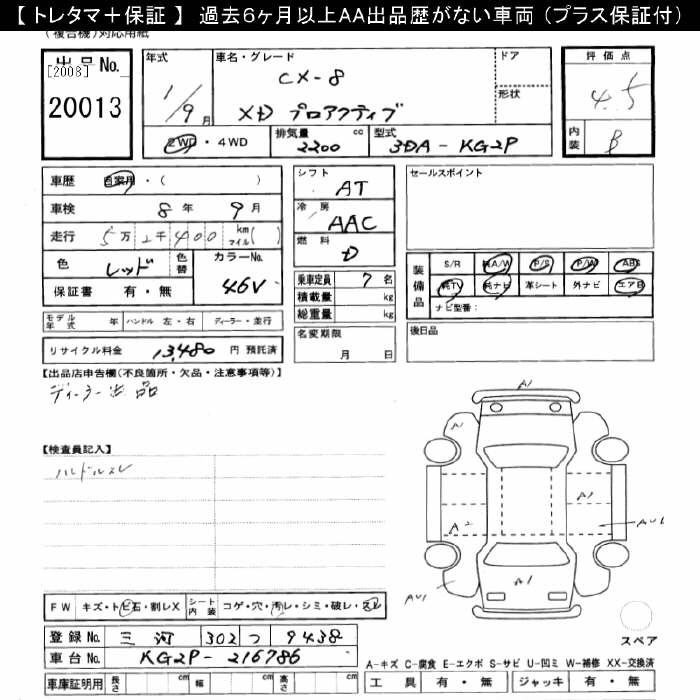 【トレタマ＋保証】 過去6ヶ月以上AA出品歴がない車両（プラス保証付）
(複合機)対応用紙
出品No.
[2008]
20013
年式
1/9月
車名・グレード
CX-8
XD プロアクティブ
ドア
形状
評価点
4.5
内装
B
2WD・4WD
排気量 2200 cc
型式 3DA-KG2P
車歴 自家用・( )
車検 8年 9月
走行 5万2千400 km マイル( )
色 レッド 色替
カラーNo. 46V
保証書 有・無
シフト
AT
冷房
AAC
燃料
D
乗車定員 7名
積載量 kg
総重量 kg
セールスポイント
装備品
S/R 純A/W P/S P/W ABS
純TV 純ナビ 革シート 外ナビ エアB
ナビ型番:
モデル年式 年 ハンドル 左・右 ディーラー・並行
リサイクル料金 13,480 円 預託済
名変期限
月 日
後日品
【出品店申告欄(不良箇所・欠品・注意事項等)】
ディーラー出品
【検査員記入】
ハンドルスレ
A1
A1
A2
AU1
AU1
A1
FW キズ・トビ石・割レX
シート内装 コゲ・穴・汚レ・シミ・破レ・スレ
登録No. 三河 302 つ 9438
車台No. KG2P-216786
車庫証明用 長さ cm 幅 cm 高さ cm
スペア
A-キズ C-腐食 E-エクボ S-サビ U-凹ミ W-補修 XX-交換済
工具 有・無 ジャッキ 有・無